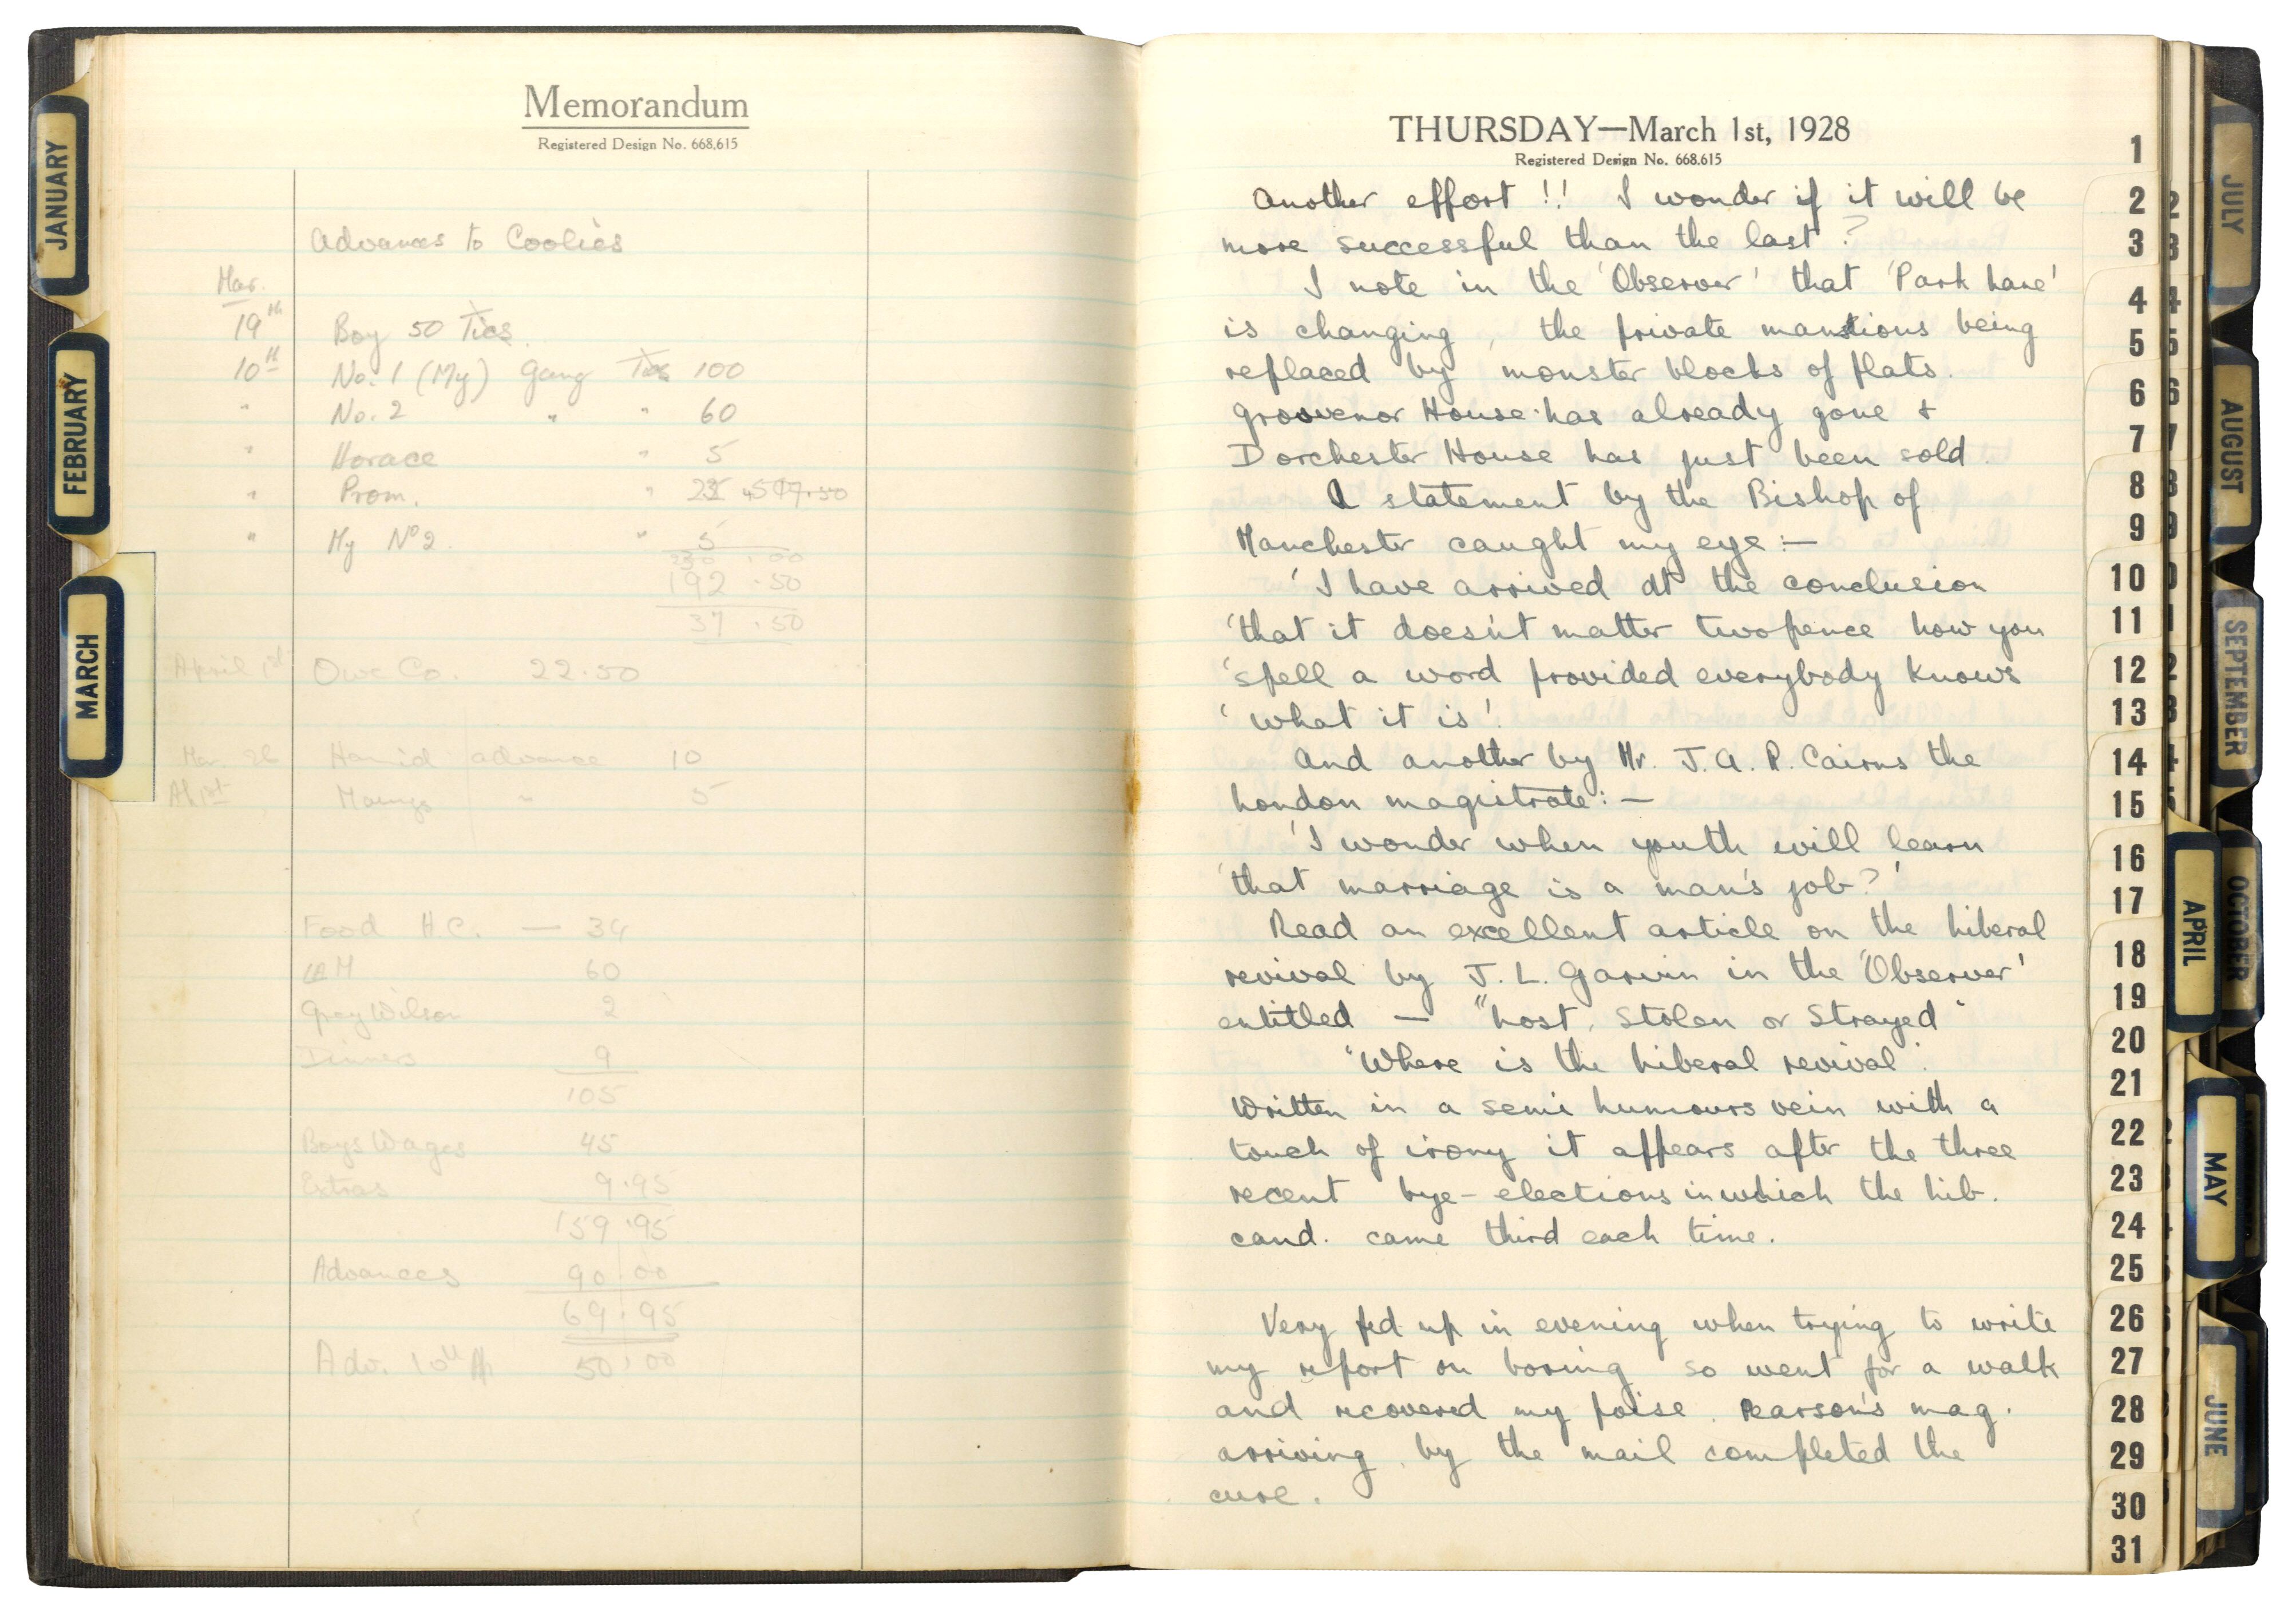 Memorandum
Registered Design No. 668,615
Advances to Coolies
Mar.
19th Boy 50 Tics.
10th No. 1 (My) Gang Tics 100
" No. 2 " " 60
" Horace " 5
" Prom. "
" My No 2. " 5
230.00
192.50
37.50
April 1st Owe Co. 22.50
Mar. 26 Hamid advance 10
Ap 1st " 5
Food H.C. — 34
60
Gray Wilson 2
Dinners 9
105
Boys Wages 45
Extras 9.95
159.95
Advances 90.00
69.95
Adv. 10th Ap 50.00
THURSDAY—March 1st, 1928
Registered Design No. 668,615
Another effort !! I wonder if it will be
more successful than the last ?
I note in the 'Observer' that 'Park Lane'
is changing, the private mansions being
replaced by monster blocks of flats.
Grosvenor House has already gone +
Dorchester House has just been sold.
A statement by the Bishop of
Manchester caught my eye :—
'I have arrived at the conclusion
'that it doesn't matter twopence how you
'spell a word provided everybody knows
'what it is'.
And another by Mr. J. A. R. Cairns the
London magistrate : —
'I wonder when youth will learn
'that marriage is a man's job?'
Read an excellent article on the Liberal
revival by J. L. Garvin in the 'Observer'
entitled — "Lost, Stolen or Strayed"
"Where is the Liberal revival".
Written in a semi humours vein with a
touch of irony it appears after the three
recent bye-elections in which the Lib.
cand. came third each time.
Very fed up in evening when trying to write
my report on boring so went for a walk
and recovered my poise. Pearson's mag.
arriving by the mail completed the
cure.
JANUARY
FEBRUARY
MARCH
APRIL
MAY
JUNE
JULY
AUGUST
SEPTEMBER
OCTOBER
1
2
3
4
5
6
7
8
9
10
11
12
13
14
15
16
17
18
19
20
21
22
23
24
25
26
27
28
29
30
31